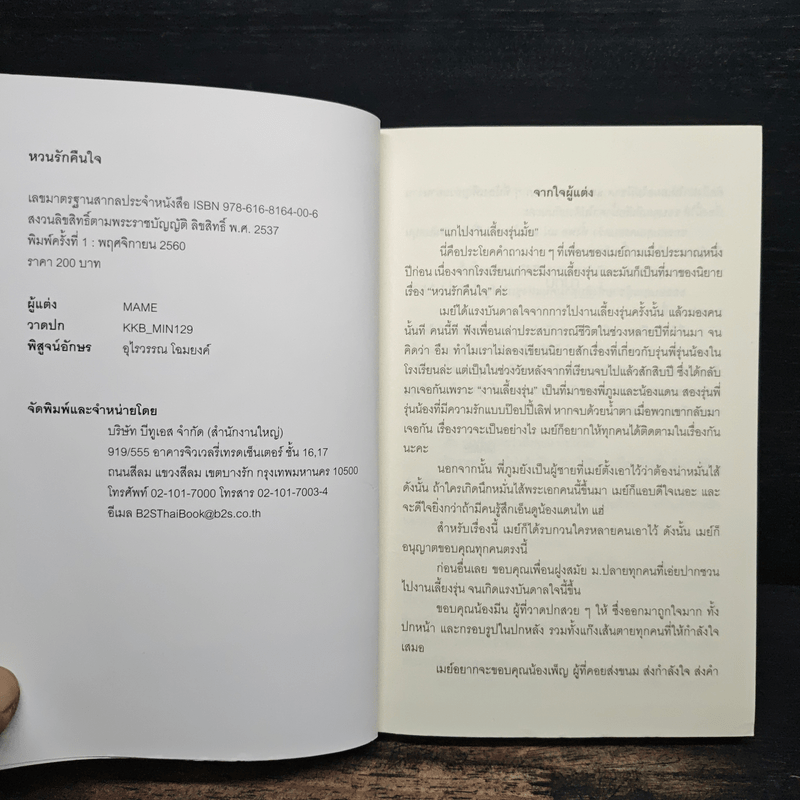 หวนรักคืนใจ
เลขมาตรฐานสากลประจำหนังสือ ISBN 978-616-8164-00-6
สงวนลิขสิทธิ์ตามพระราชบัญญัติ ลิขสิทธิ์ พ.ศ. 2537
พิมพ์ครั้งที่ 1 : พฤศจิกายน 2560
ราคา 200 บาท
ผู้แต่ง MAME
วาดปก KKB_MIN129
พิสูจน์อักษร อุไรวรรณ โฉมยงค์
จัดพิมพ์และจำหน่ายโดย
บริษัท บีทูเอส จำกัด (สำนักงานใหญ่)
919/555 อาคารจิวเวลรี่เทรดเซ็นเตอร์ ชั้น 16,17
ถนนสีลม แขวงสีลม เขตบางรัก กรุงเทพมหานคร 10500
โทรศัพท์ 02-101-7000 โทรสาร 02-101-7003-4
อีเมล B2SThaiBook@b2s.co.th
จากใจผู้แต่ง
“แกไปงานเลี้ยงรุ่นมั้ย”
นี่คือประโยคคำถามง่าย ๆ ที่เพื่อนของเมย์ถามเมื่อประมาณหนึ่ง
ปีก่อน เนื่องจากโรงเรียนเก่าจะมีงานเลี้ยงรุ่น และมันก็เป็นที่มาของนิยาย
เรื่อง “หวนรักคืนใจ” ค่ะ
เมย์ได้แรงบันดาลใจจากการไปงานเลี้ยงรุ่นครั้งนั้น แล้วมองคน
นั้นที คนนี้ที ฟังเพื่อนเล่าประสบการณ์ชีวิตในช่วงหลายปีที่ผ่านมา จน
คิดว่า อืม ทำไมเราไม่ลองเขียนนิยายสักเรื่องที่เกี่ยวกับรุ่นพี่รุ่นน้องใน
โรงเรียนล่ะ แต่เป็นในช่วงวัยหลังจากที่เรียนจบไปแล้วสักสิบปี ซึ่งได้กลับ
มาเจอกันเพราะ “งานเลี้ยงรุ่น” เป็นที่มาของพี่ภูมและน้องแดน สองรุ่นพี่
รุ่นน้องที่มีความรักแบบป๊อปปี้เลิฟ หากจบด้วยน้ำตา เมื่อพวกเขากลับมา
เจอกัน เรื่องราวจะเป็นอย่างไร เมย์ก็อยากให้ทุกคนได้ติดตามในเรื่องกัน
นะคะ
นอกจากนั้น พี่ภูมยังเป็นผู้ชายที่เมย์ตั้งเอาไว้ว่าต้องน่าหมั่นไส้
ดังนั้น ถ้าใครเกิดนึกหมั่นไส้พระเอกคนนี้ขึ้นมา เมย์ก็แอบดีใจเนอะ และ
จะดีใจยิ่งกว่าถ้ามีคนรู้สึกเอ็นดูน้องแดนไท แฮ่
สำหรับเรื่องนี้ เมย์ก็ได้รบกวนใครหลายคนเอาไว้ ดังนั้น เมย์ก็
อนุญาตขอบคุณทุกคนตรงนี้
ก่อนอื่นเลย ขอบคุณเพื่อนฝูงสมัย ม.ปลายทุกคนที่เอ่ยปากชวน
ไปงานเลี้ยงรุ่น จนเกิดแรงบันดาลใจนี้ขึ้น
ขอบคุณน้องมีน ผู้ที่วาดปกสวย ๆ ให้ ซึ่งออกมาถูกใจมาก ทั้ง
ปกหน้า และกรอบรูปในปกหลัง รวมทั้งแก๊งเส้นตายทุกคนที่ให้กำลังใจ
เสมอ
เมย์อยากจะขอบคุณน้องเพ็ญ ผู้ที่คอยส่งขนม ส่งกำลังใจ ส่งคำ